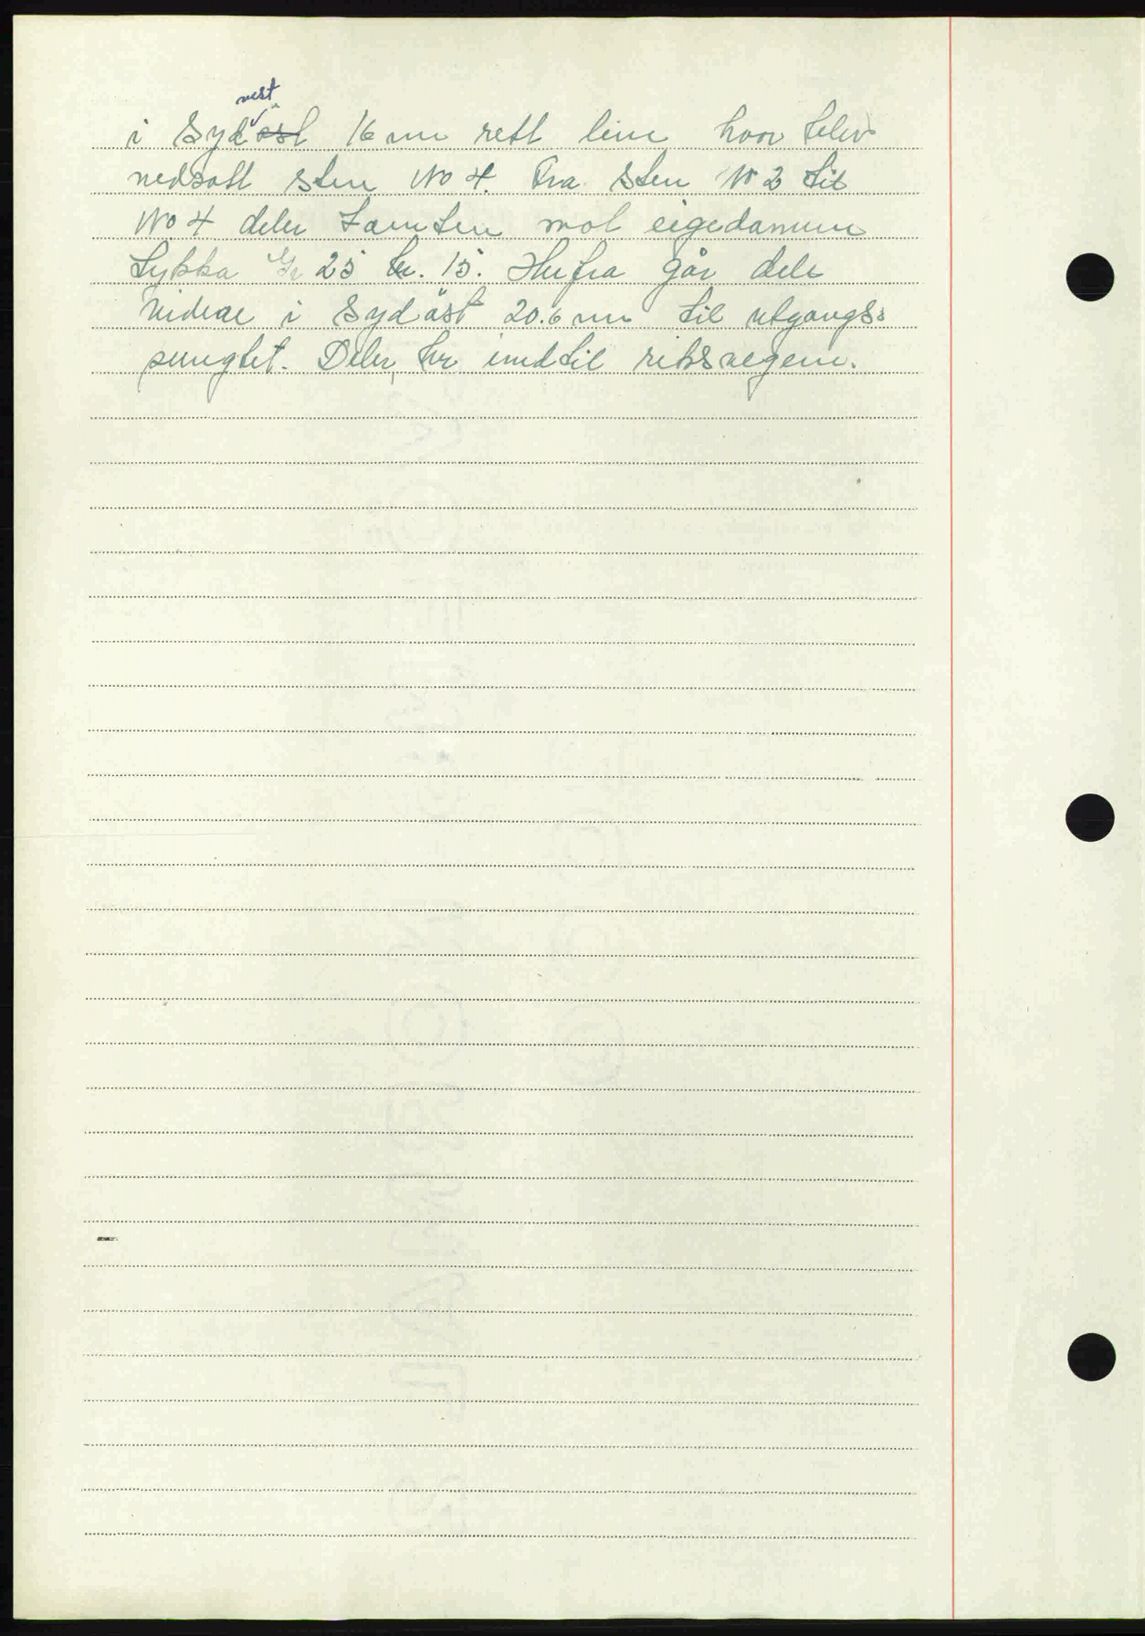 vest
i Sydöst 16 m rett line hvor blev
nedsatt sten No 4. Fra Sten No 3 til
No 4 deler tomten mot eigedommen
Lykka Gr 25 br. 15. Herfra går dele
videre i Sydöst 20.6 m til utgangs-
pungtet. Deler, her indtil riksvegen.